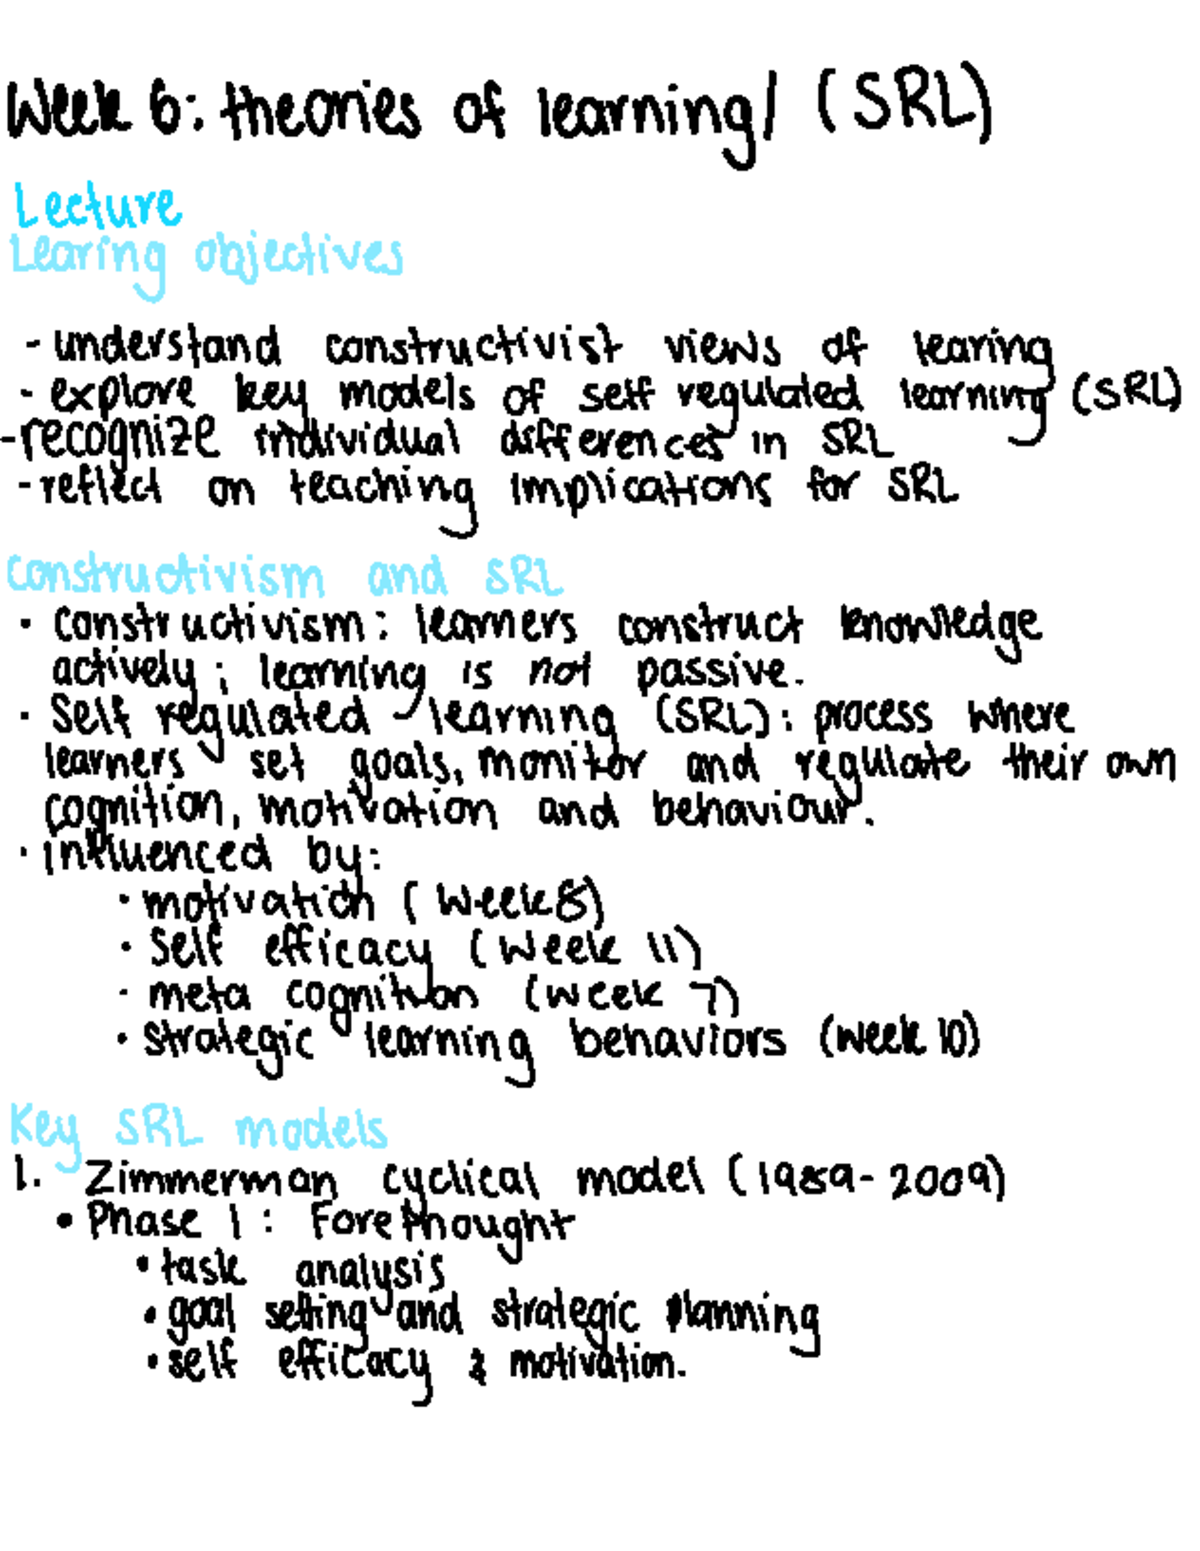 Week 6: theories of learning/ (SRL)
Lecture
Learing objectives
- understand constructivist views of learing
- explore key models of self regulated learning (SRL)
- recognize individual differences in SRL
- reflect on teaching implications for SRL
Constructivism and SRL
• constructivism: learners construct knowledge
actively; learning is not passive.
• Self regulated learning (SRL): process where
learners set goals, monitor and regulate their own
cognition, motivation and behaviour.
• influenced by:
• motivation (week 8)
• Self efficacy (week 11)
• meta cognition (week 7)
• strategic learning behaviors (week 10)
Key SRL models
1. Zimmerman cyclical model (1989-2009)
• Phase 1: Forethought
• task analysis
• goal setting and strategic planning
• self efficacy & motivation.